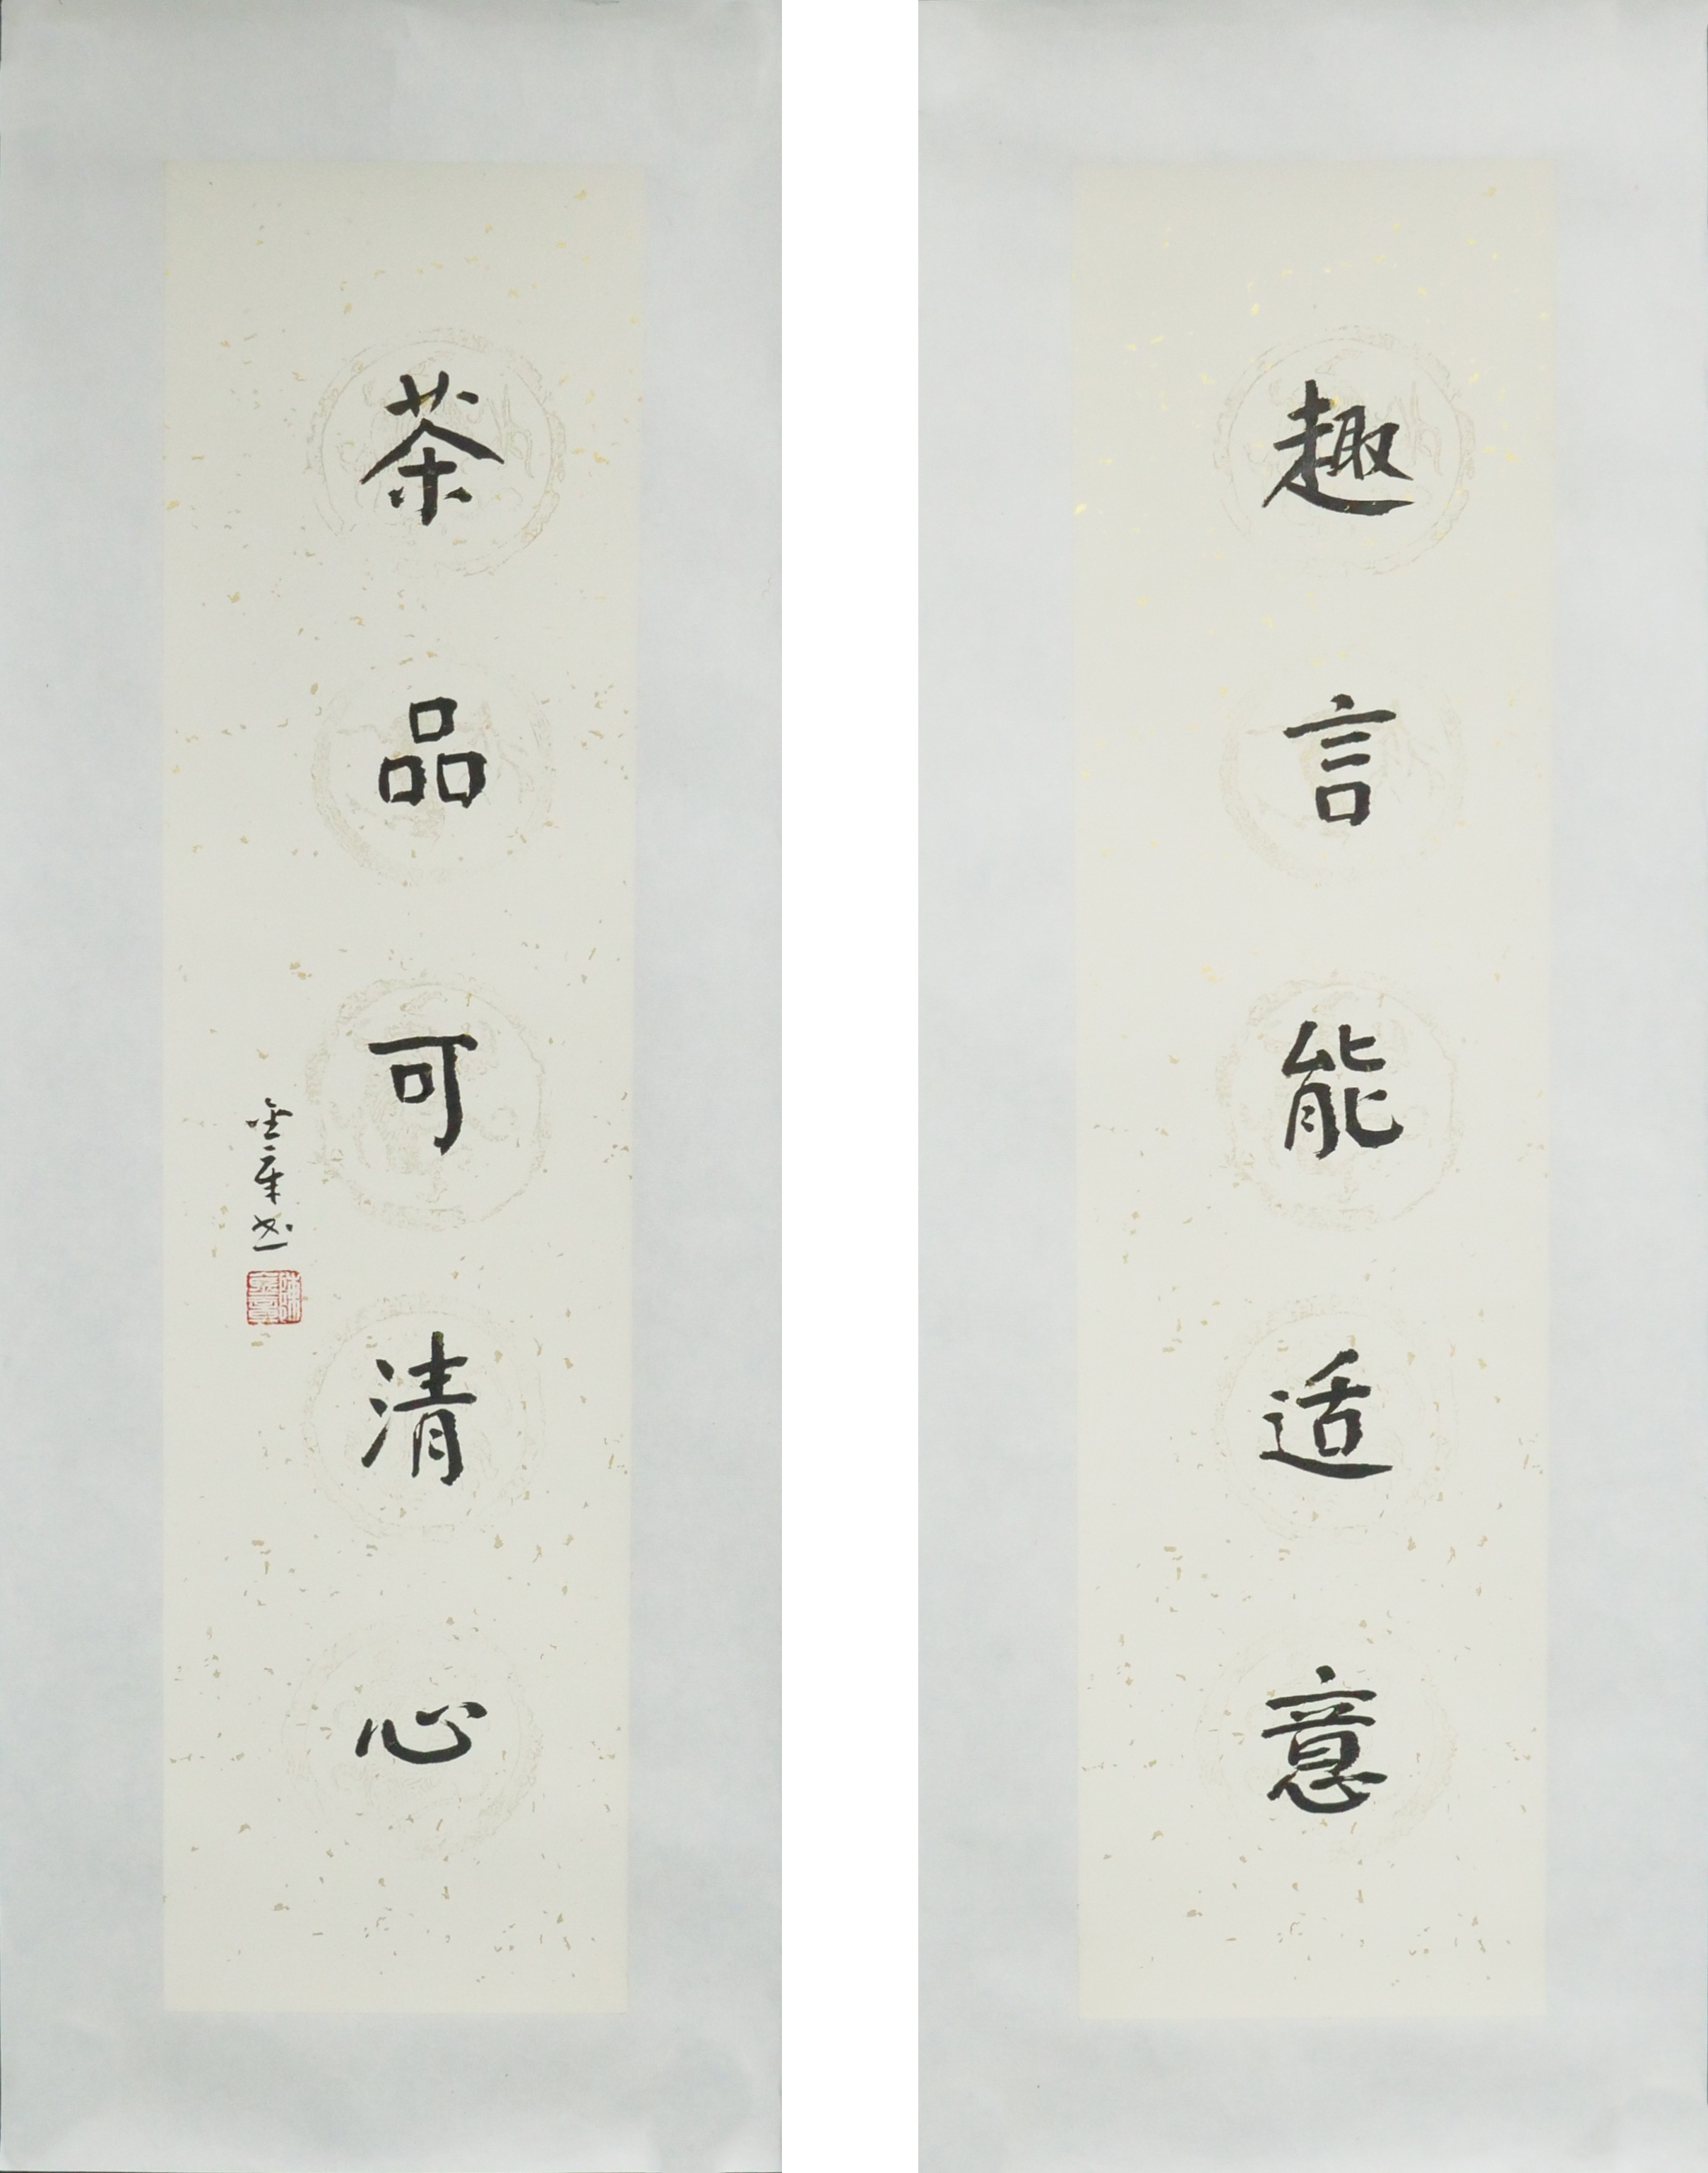 趣言能适意
茶品可清心
金章书